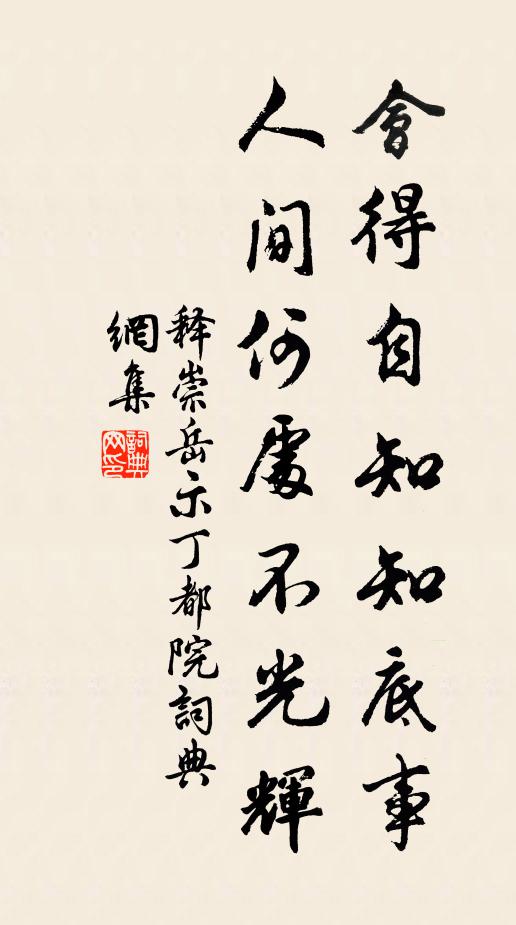 會得自知知底事
人間何處不光輝
释崇岳示丁都院詞典
網集
詞典网印